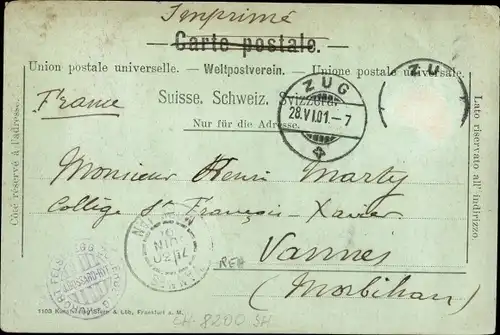 Imprimé
Carte postale.
Union postale universelle. — Weltpostverein. — Unione postale universale.
France
Suisse. Schweiz. Svizzera.
Nur für die Adresse.
ZUG
28.VI.01.-7
ZUG
Côté réservé à l'adresse.
Lato riservato all' indirizzo.
Monsieur Henri Marty
Collège St François-Xavier
Vannes
(Morbihan)
CH-8200 SH